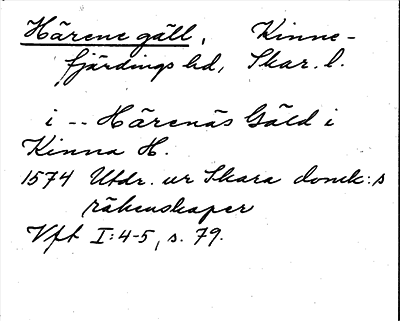 Härene gäll, Kinne-
fjärdings hd, Skar. l.
i -- Härenäs Gäld i
Kinna H.
1574 Utdr. ur Skara domk:s
räkenskaper
Vft I:4-5, s. 79.